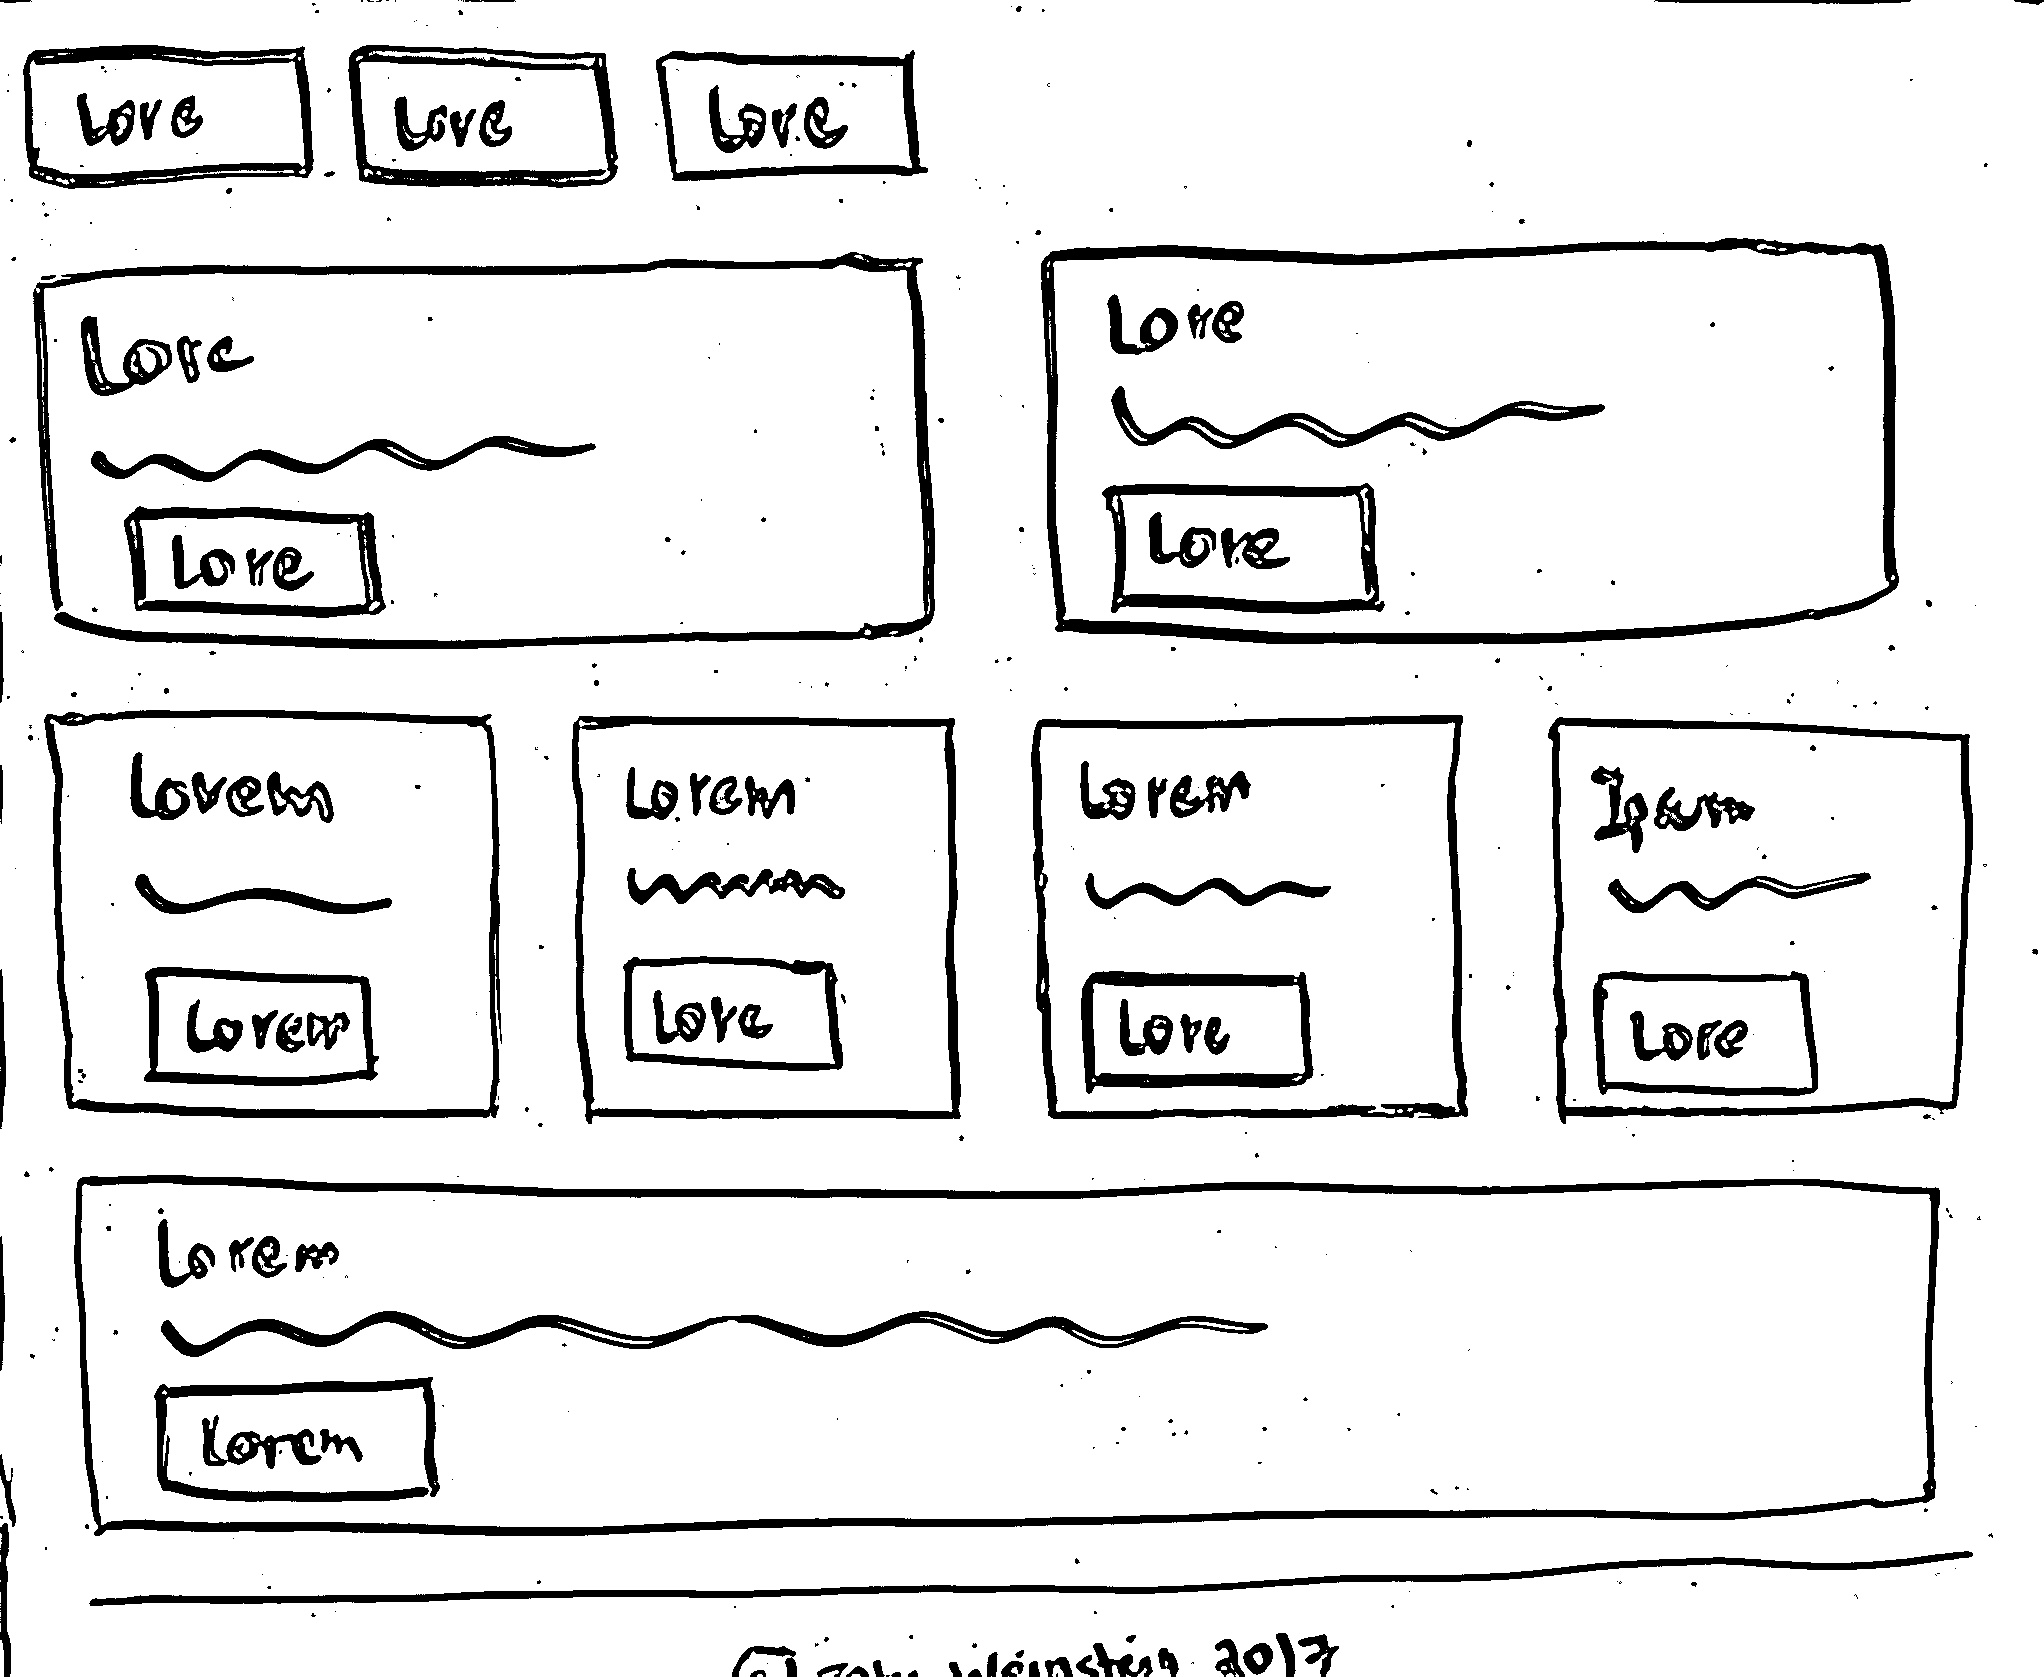 Lore Lore Lore
Lore
Lore
Lore
Lore
Lorem
Lorem
Lore
Lorem
Lore
Ipsum
Lore
Lorem
Lorem
2017